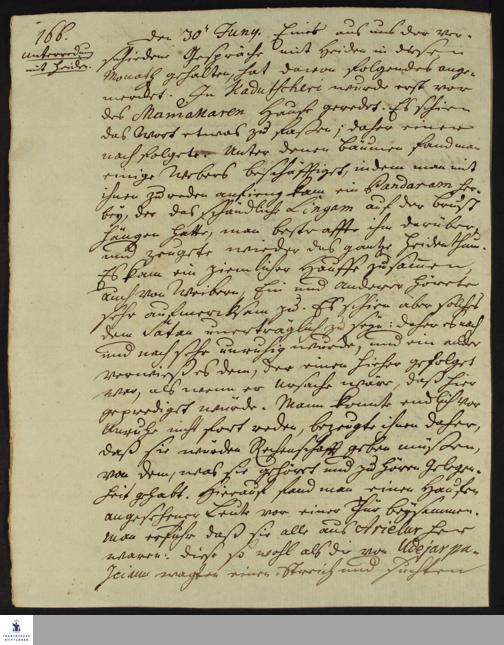 166.
Unterredung
mit Heiden.
den 30t Juny. Einer aus uns der ver-
schiedene Gespräche mit Heiden in diesem
Monath gehalten, hat davon folgendes ange-
mercket. In Kadutscheri wurde erst vor
des Mamakaren Hause geredet. Es schien
das Wort etwas zu fassen; daher einer
nach folgete. Unter denen Bäumen fand man
einige Webers beschäfftiget, indem man mit
ihnen zu reden anfieng kam ein Pandaram her-
bey, der das schändliche Lingam auf der Brust
hängen hatte, man bestraffte ihn darüber,
und zeugete wieder das gantze Heidenthum.
Es kam ein ziemlicher Hauffe zusammen,
auch von Weibern, Ein und anderer hörete
sehr aufmercksam zu. Es schien aber solches
dem Satan unerträglich zu seyn: daher es nach
und nach sehr unruhig wurde, und ein ander
verwiess es dem, der einen hieher gefolget
war, als wenn er Ursache wäre, dass hier
geprediget würde. Mann konte endlich vor
Unruhe nicht fort reden, bezeugte ihnen daher,
dass sie würden Rechenschafft geben müssen,
von dem, was sie gehöret und zu hören Gelegen-
heit gehabt. Hierauf fand man einen Hauffen
angesehener Leute vor einer Thür beysammen.
Man erfuhr dass sie alle aus Arielur her
waren: diese so wohl als der von Udejarpa-
leiam wagten einen Streich und suchten
FRANCKESCHE
STIFTUNGEN